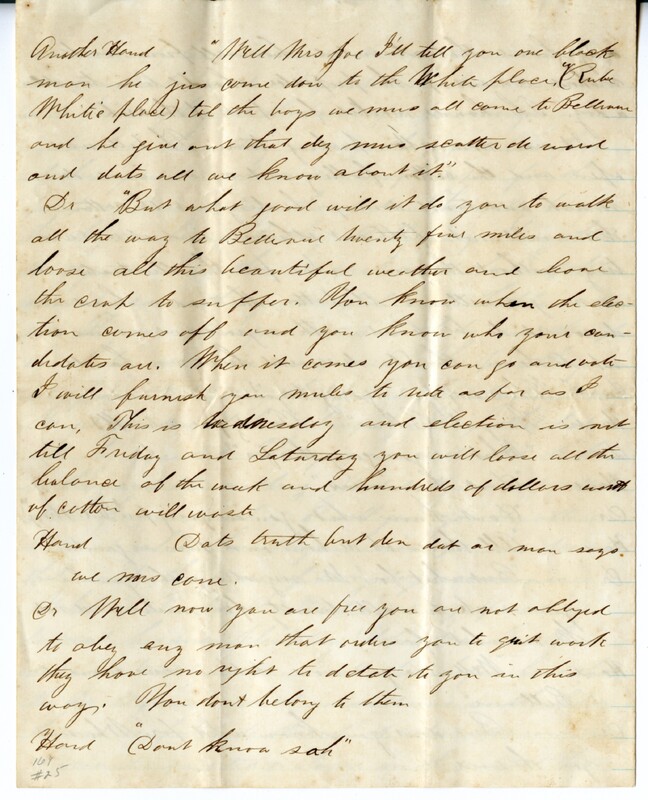 Another Hand "Well Mrs Joe I'll tell you one black
man he jus come down to the White place, (Rube
White place) tol the boys we mus all come to Bellevue
and he give out that dey mus scatter de word
and dats all we know about it."
Dr "But what good will it do you to walk
all the way to Bellevue twenty five miles and
loose all this beautiful weather and leave
the crop to suffer. You know when the elec-
tion comes off and you know who your can-
didates are. When it comes you can go and vote
I will furnish you mules to ride as far as I
can, This is Wednesday and election is not
till Friday and Saturday you will loose all the
balance of the week and hundreds of dollars worth
of cotton will waste
Hand Dats truth but den dat ar man says
we mus come.
Dr Well now you are free you are not obliged
to obey any man that orders you to quit work
they have no right to dictate to you in this
way. You dont belong to them
Hand "Dont know sah"
#25